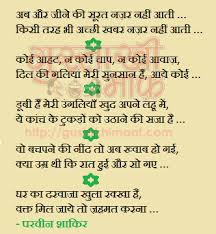 अब और जीने की सूरत नज़र नहीं आती ...
किसी तरह भी अच्छी खबर नज़र नहीं आती ...
कोई आहट, न कोई चाप, न कोई आवाज़,
दिल की गलिया मेरी सुनसान हैं, आये कोई ...
डूबी हैं मेरी उंगलियाँ खुद अपने लहू में,
ये कांच के टुकडों को उठाने की सजा है ...
वो बचपने की नींद तो अब रूवाब हो गई,
क्या उम्र थी कि रात हुई और सो गए ...
घर का दरवाजा खुला रक्खा है,
वक्त मिल जाये तो ज़हमत करना ...
- परवीन शाकिर